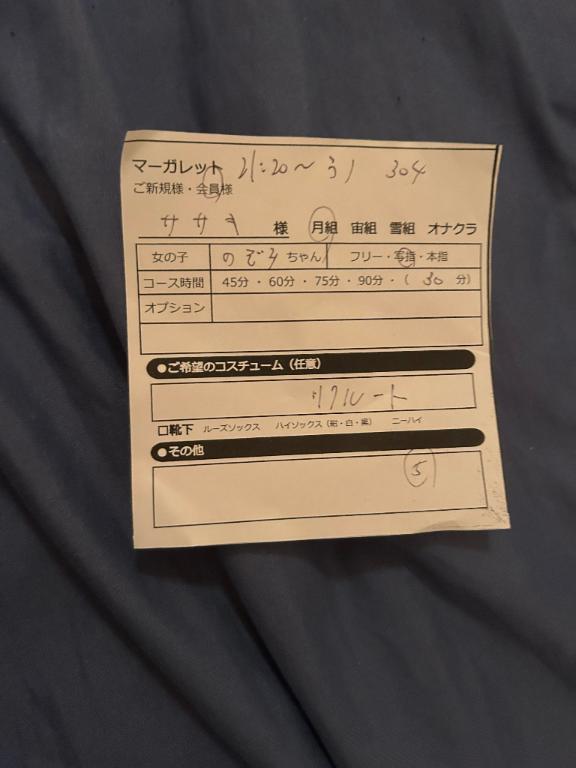 マーガレット 21:20～ 304
ご新規様・会員様
ササキ 様 月組 宙組 雪組 オナクラ
女の子 のぞみちゃん フリー・写指・本指
コース時間 45分・60分・75分・90分・( 30 分)
オプション
●ご希望のコスチューム（任意）
リクルート
□靴下 ルーズソックス ハイソックス（紺・白・黒） ニーハイ
●その他
5